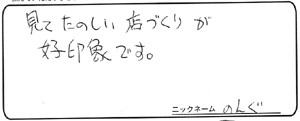 見てたのしい店づくりが
好印象です。
ニックネーム のんぐ